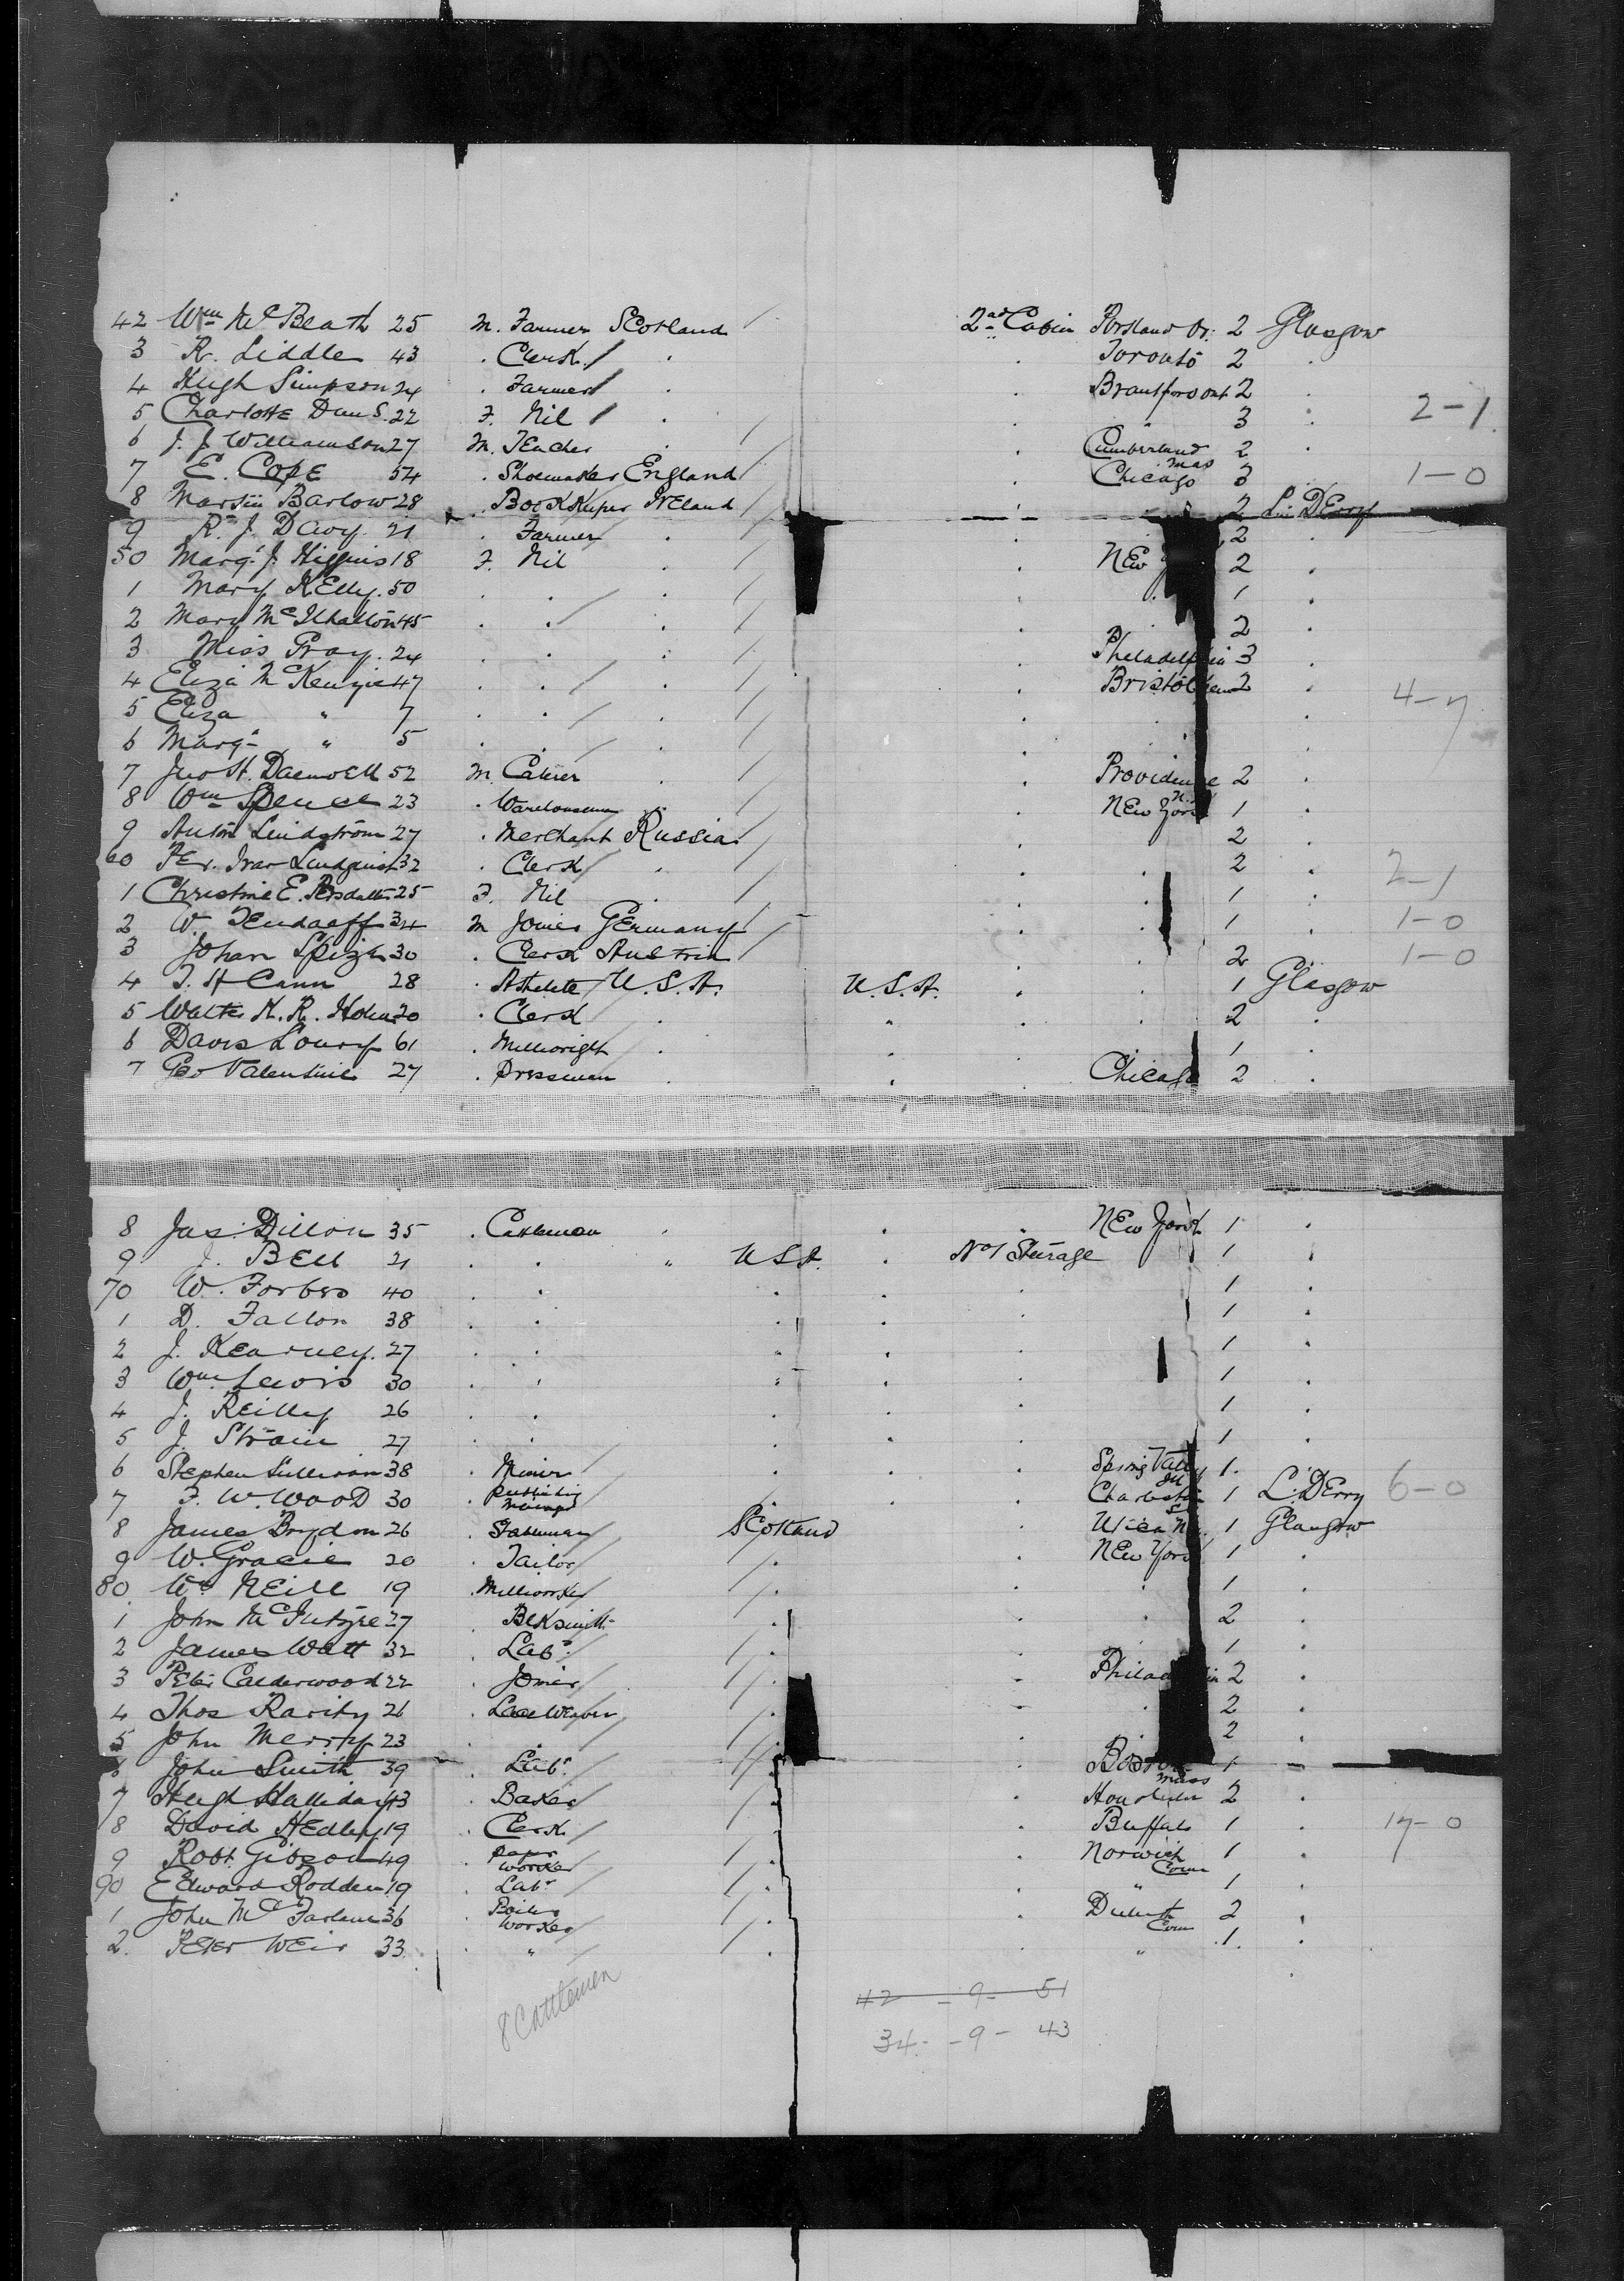 42 Wm McBeath 25 m. Farmer Scotland / 2nd Cabin Portland Or. 2 Glasgow
3 R. Liddle 43 . Clerk / . . Toronto 2 .
4 Hugh Simpson 24 . Farmer / . . Brantford Ont 2 .
5 Charlotte Dun S. 22 F. Nil / . . " 3 . 2-1
6 J. J. Williamson 27 M. Teacher . / . Cumberland 2 .
7 E. Cope 54 . Shoemaker England / . Chicago 3 . 1-0
8 Martin Barlow 28 . Bookkeeper Ireland / . 2 L. Derry
9 R. J. Davy 21 . Farmer . / . 2 .
50 Margt J. Higgins 18 F. Nil . / . New 2 .
1 Mary Kelly 50 . . . / . . 1 .
2 Mary 45 . . / . / . 2 .
3 Miss Gray 24 . . . / . Philadelphia 3 .
4 Eliza McKenzie 47 . . / . / . Bristol 2 .
5 Eliza " 7 . . / . / . . . 4-7
6 Margt " 5 . . / . / . . .
7 Jno H. 52 m . / . Providence 2 .
8 Wm Spence 23 . Warehouseman . / . New York 1 .
9 Anton Lindström 27 . Merchant Russia / . . 2 .
60 Ivar Lindquist 32 . Clerk . / . . 2 . 2-1
1 Christine E. 25 F. Nil . / . . 1 .
2 W. 34 m Joiner Germany / . . 1 . 1-0
3 Johan 30 . Clerk Austria / . . 2 . 1-0
4 T. H Cann 28 . Athelete / U.S.A. U.S.A. . . 1 Glasgow
5 Walter K. R. 20 . Clerk . " . . 2 .
6 Davis Loury 61 . Millwright . " . . 1 .
7 Geo Valentine 27 . Pressman . " . Chicago 2 .
8 Jas. Dillon 35 . Cattleman . . . New York 1 .
9 J. Bell 21 . . " U S A. . No 1 Steerage 1 .
70 W. Forbes 40 . . . . . 1 .
1 D. Fallon 38 . . . . . 1 .
2 J. Kearney. 27 . . . . . 1 .
3 Wm Lewis 30 . . . . . 1 .
4 J. Reilly 26 . . . . . 1 .
5 J. Strain 27 . . . . . 1 .
6 Stephen Sullivan 38 . Miner / . . . Spring Valley Ill 1.
7 F. W. Wood 30 . . . . Charleston 1 L. Derry 6-0
8 James Brydon 26 . Scotland . Utica N.Y. 1 Glasgow
9 W. Gracie 20 . Tailor / / . . New York 1 .
80 Wm Neill 19 . Millworker / / . . . 1 .
1 John McIntyre 27 . Blksmith . . . 2 .
2 James Watt 32 . Labr / / . . . 1 .
3 Peter Calderwood 22 . Joiner / / . . Philadelphia 2 .
4 Thos Rarity 26 . Lace Weaver / / . . . 2 .
5 John Merry 23 . . / / . . . 2 .
6 John Smith 39 . Labr / . . Boston Mass 1 .
7 Hugh Halliday 43 . Baker / / . . Honolulu 2 .
8 David Hedley 19 . Clerk / / . . Buffalo 1 . 17-0
9 Robt. Gibson 49 . Paper Worker / . . Norwich Conn 1 .
90 Edward Rodden 19 . Labr / . . " 1 .
1 John McFarlane 36 . Boiler Worker / . . Conn 2 .
2. Peter Weir 33. . " / / . . " .1. .
8 Cattlemen
42 - 9 - 51
34 - 9 - 43